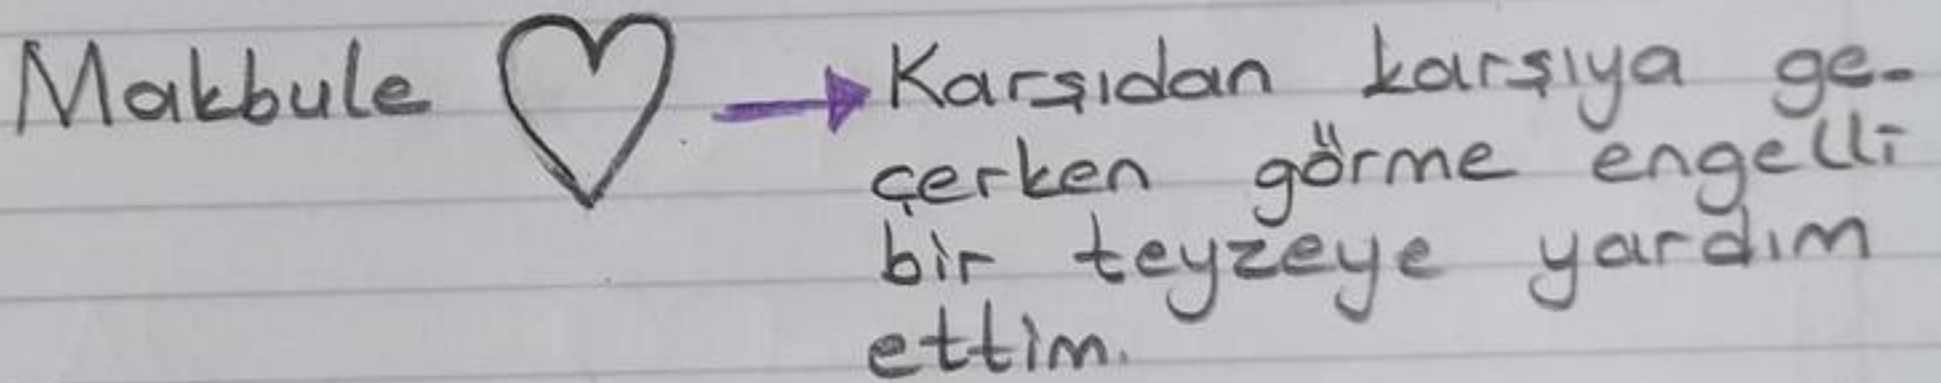 Makbule ♡ → Karşıdan karşıya ge-
çerken görme engelli
bir teyzeye yardım
ettim.